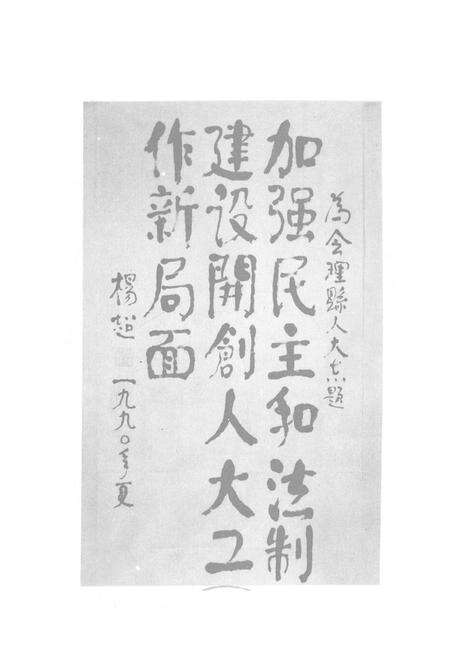 為会理縣人大志題
加强民主和法制
建设開創人大工
作新局面
楊超
一九九〇年夏